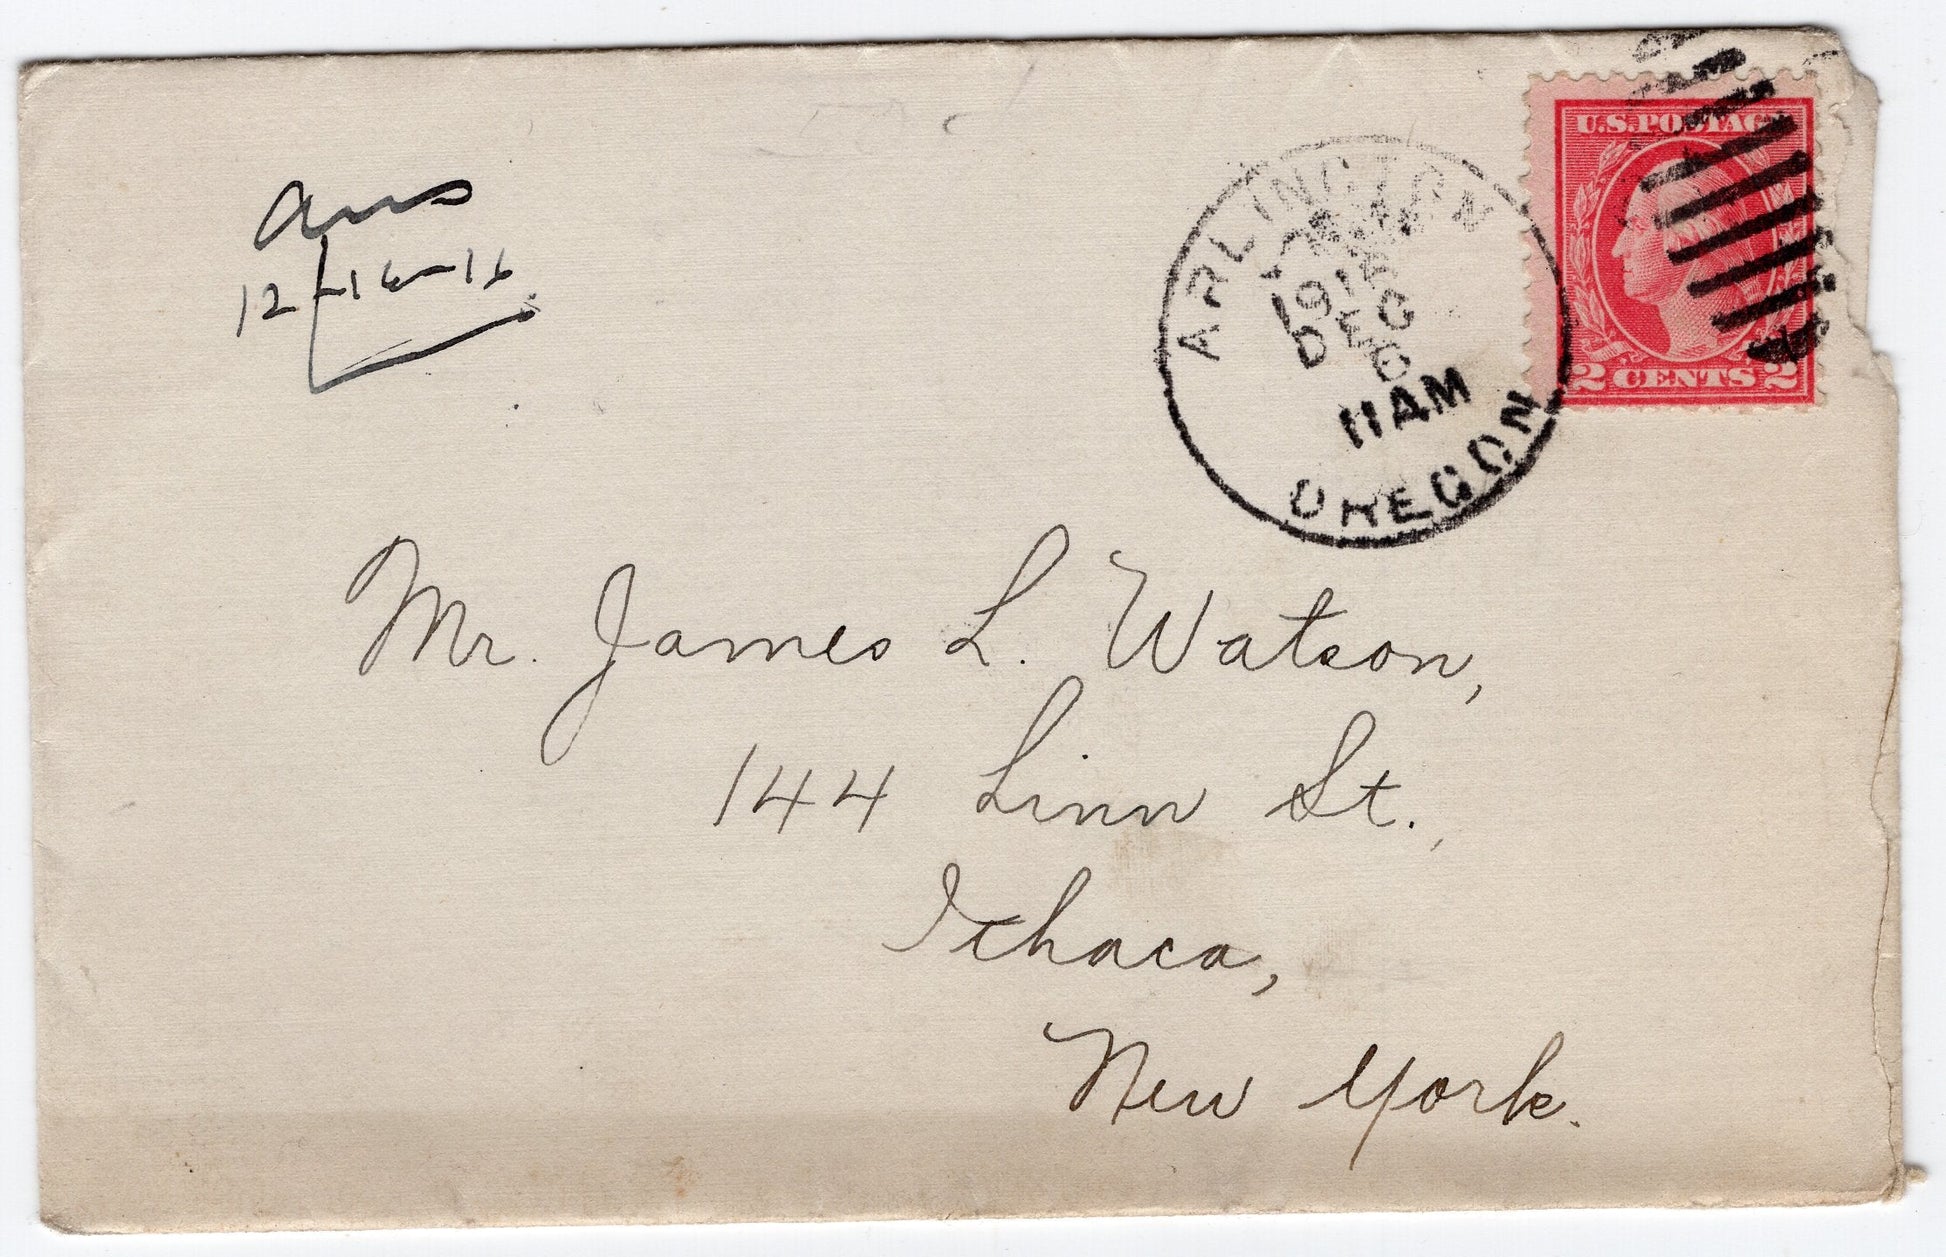 U.S. POSTAGE
2 CENTS 2
ARLINGTON
DEC
6
11 AM
OREGON
ans
12-16-16
Mr. James L. Watson,
144 Linn St.,
Ithaca,
New York.